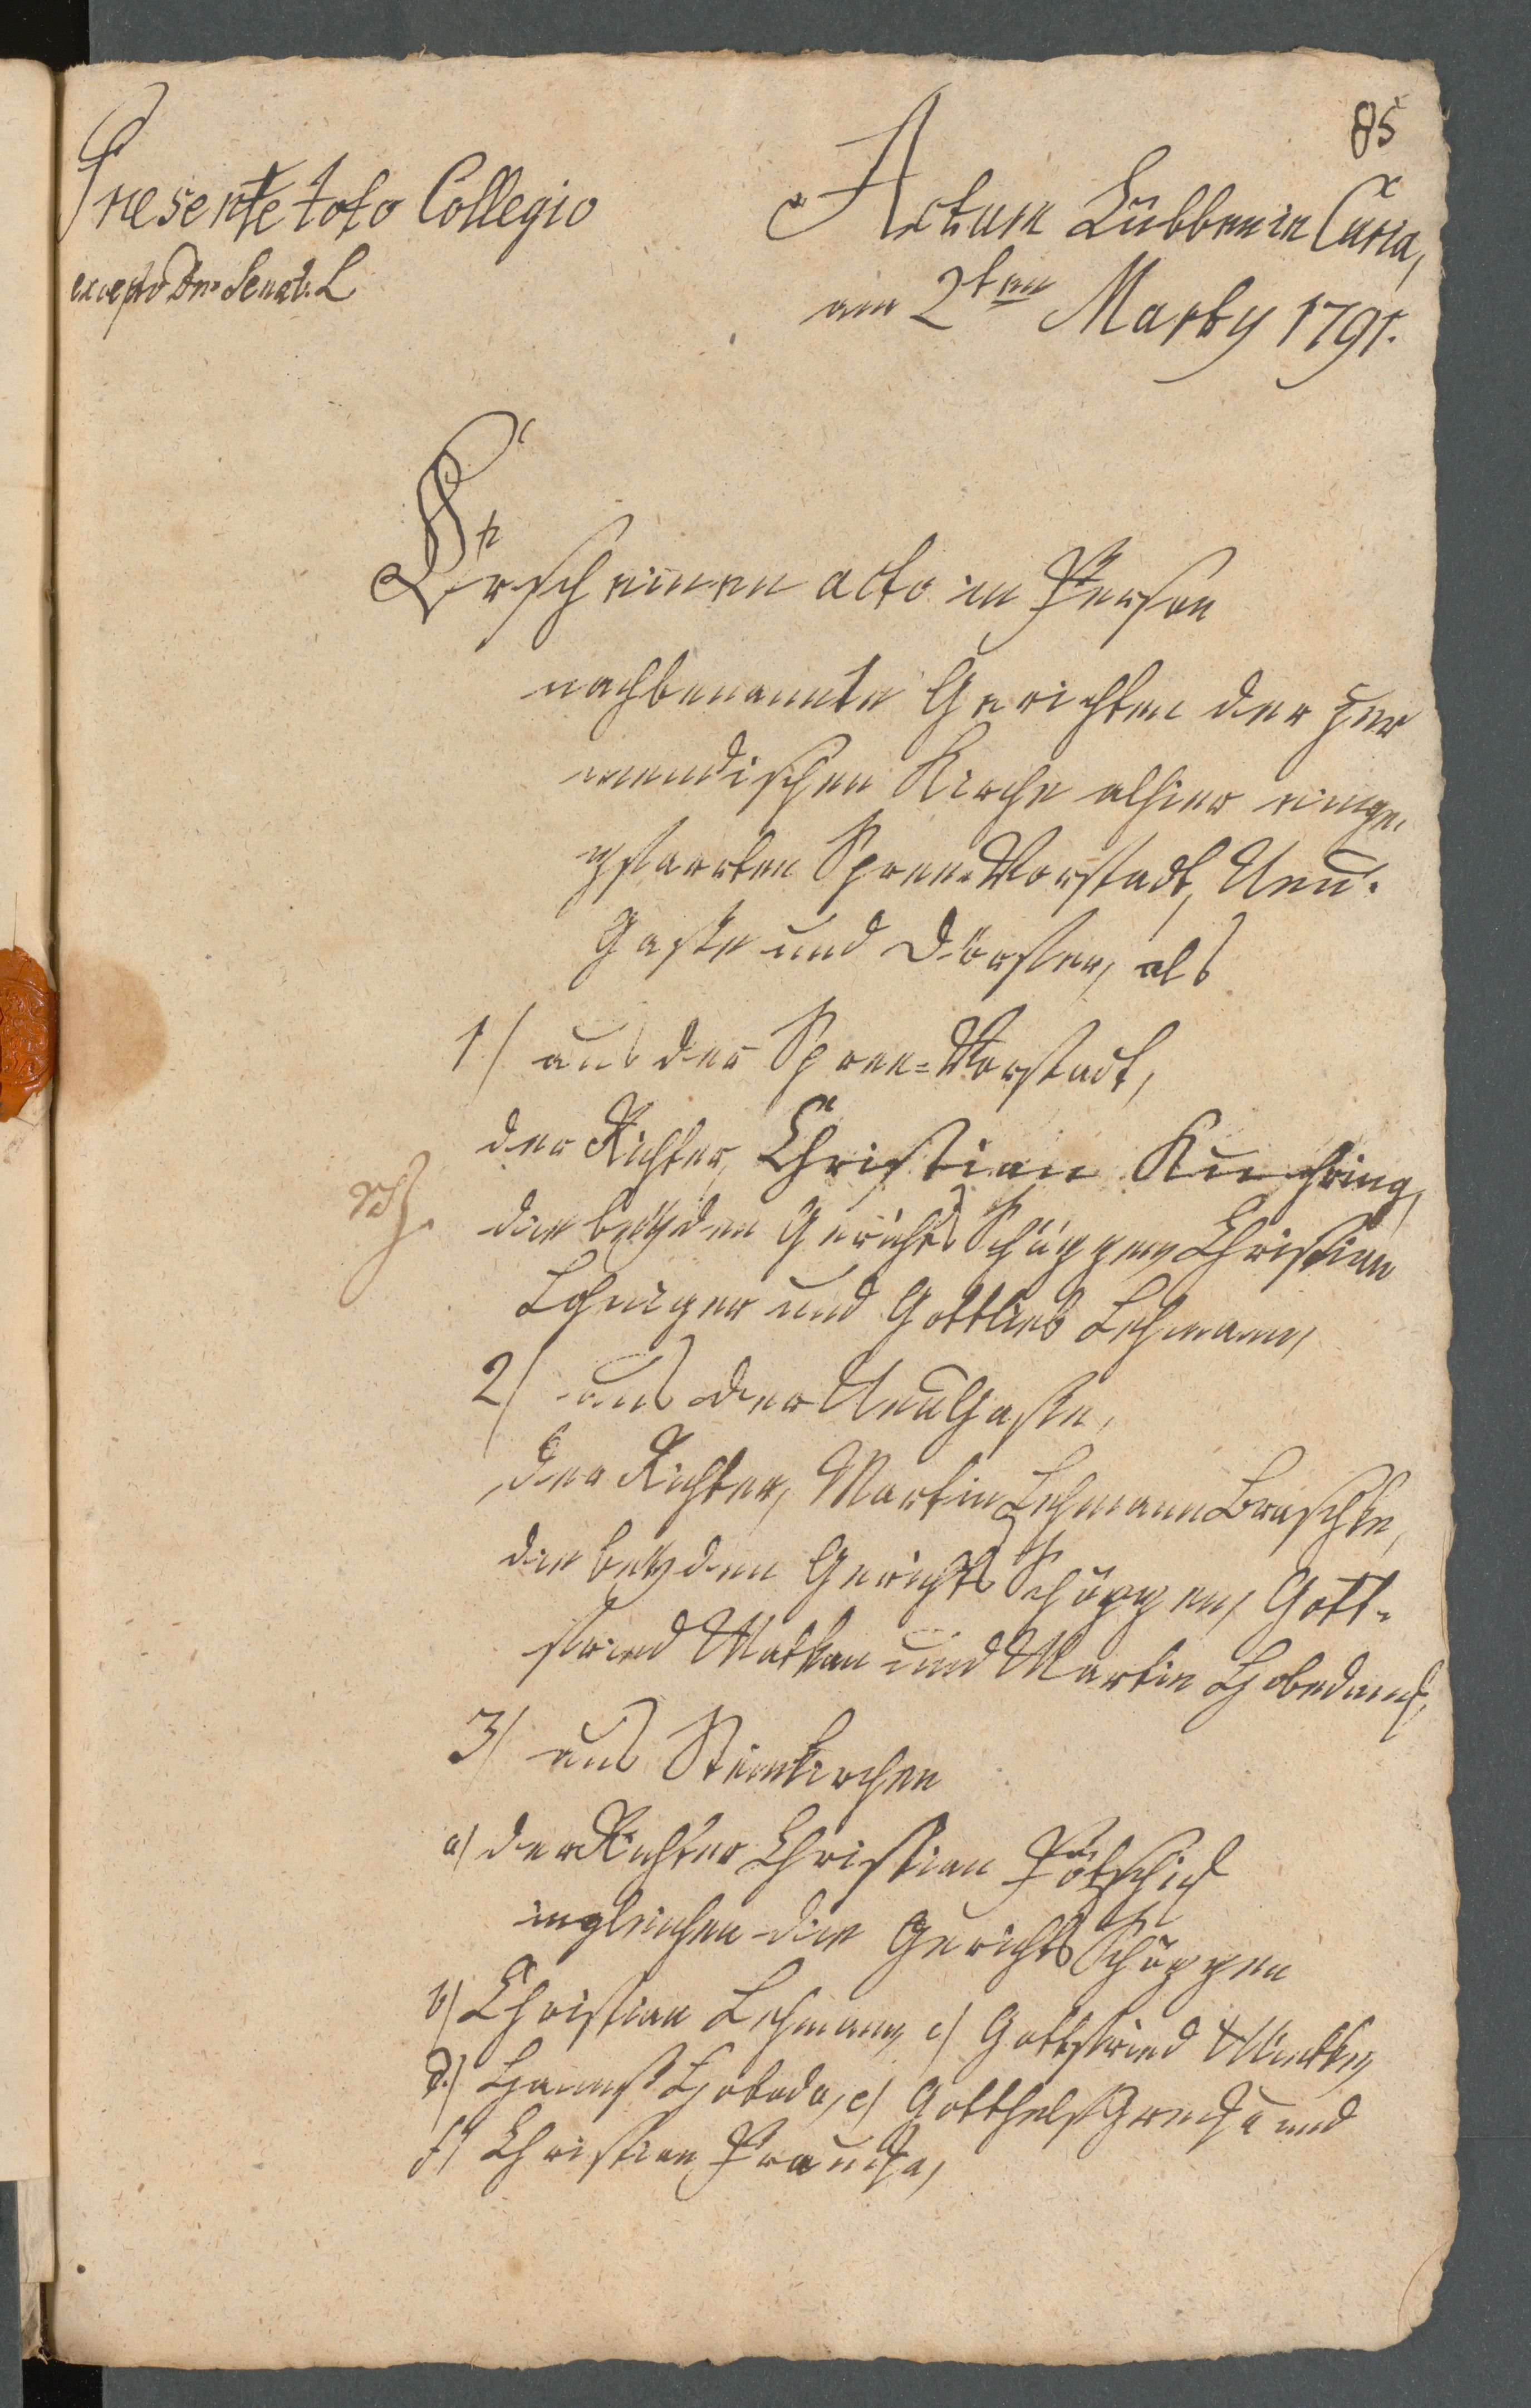 85
Præsente toto Collegio
excepto Dno Senat. L
Actum Lübben in Curia,
am 2ten Marty 1791.
Erscheinen acto in Person
nachbenannte Gerichten der zur
wendischen Kirche alhier einge-
pfarrten Spree-Vorstadt, Neu-
Gaße und Dörfer, als
1/ aus der Spree-Vorstadt,
der Richter, Christian Kuehring,
die beyden Gerichts Schöppen, Christian
und Gottlieb Lehmann,
2/ aus der Neu Gaße,
der Richter, Martin Lehmann
die beyden Gerichts Schöppen, Gott-
fried Mattan und Martin
3/ aus Steinkirchen
a) der Richter Christian Pötschick
ingleichen die Gerichts Schöppen
b) Christian Lehmann, c) Gottfried
d.) Hannß e) Gotthelf und
f) Christian